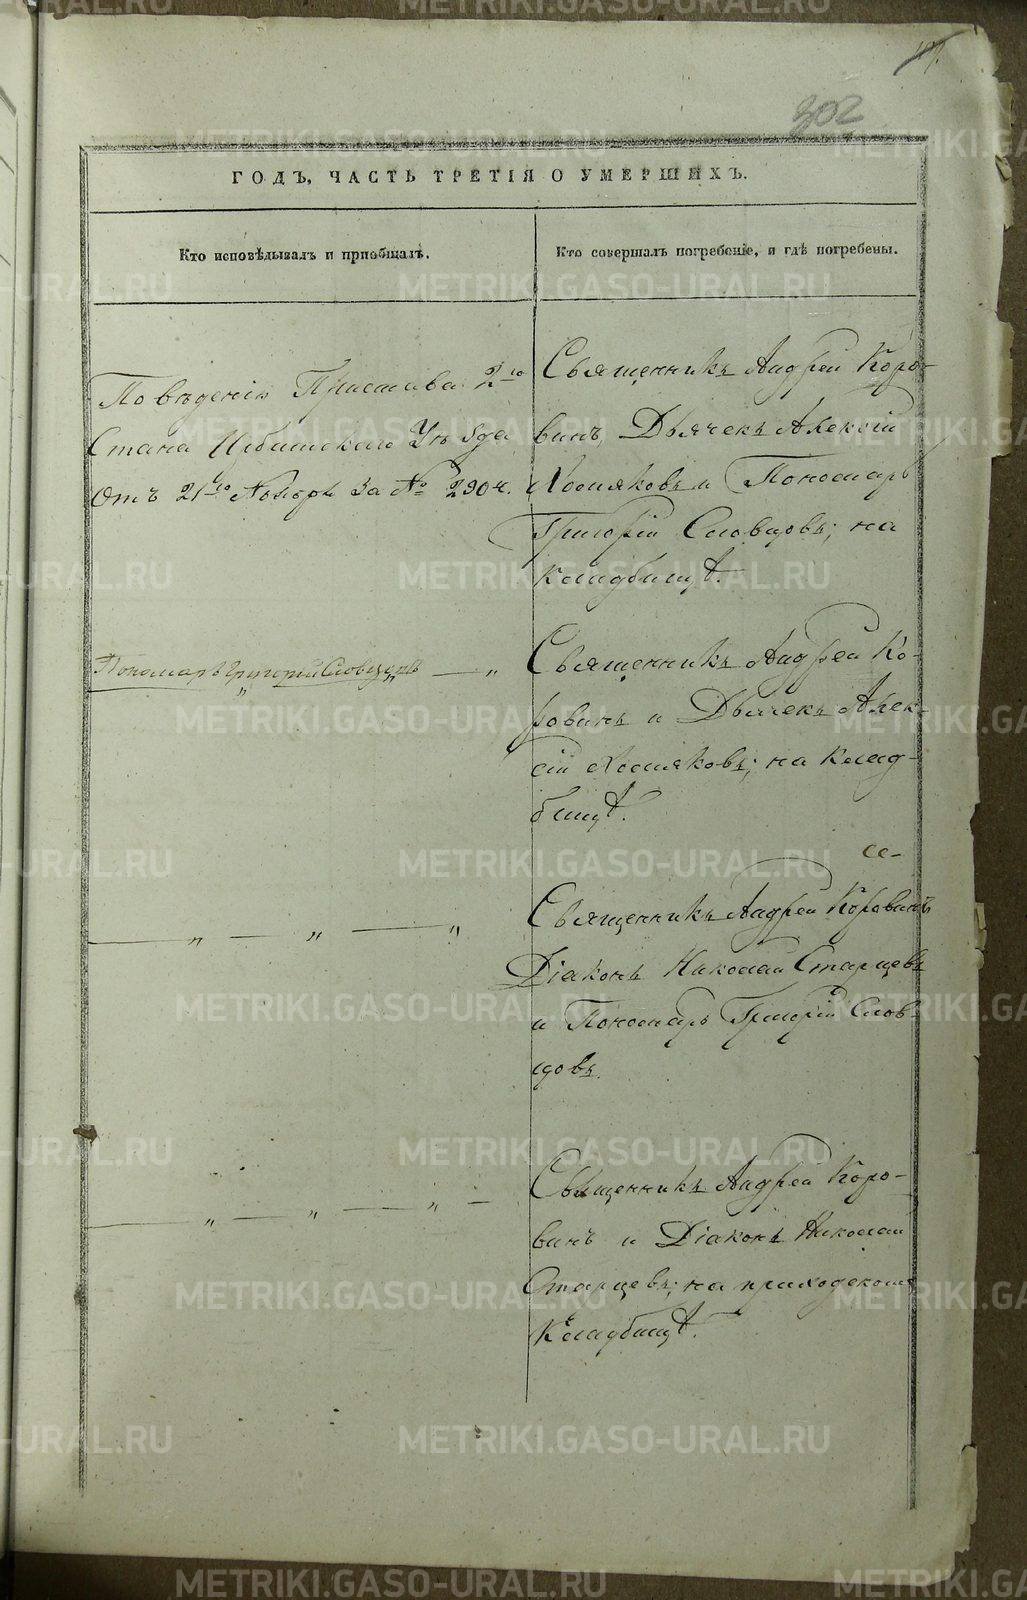 302
ГОДЪ, ЧАСТЬ ТРЕТІЯ О УМЕРШИХЪ.
Кто исповѣдывалъ и пріобщалъ.
Кто совершалъ погребеніе, и гдѣ погребены.
По вѣденію Пристава 2го
Стана Ирбитскаго Уѣзда
Отъ 21го Ноября За № 2904.
Священникъ Андрей Коро-
винъ, Дьячекъ Алексій
Хомяковъ и Пономарь
Григорій Словцовъ; на
кладбищѣ.
Пономарь Григорій Словцовъ
Священникъ Андрей Ко-
ровинъ и Дьячекъ Алек-
сій Хомяковъ; на клад-
бищѣ.
Священникъ Андрей Коровинъ
Діаконъ Николай Старцевъ
и Пономарь Григорій Слов-
цовъ.
Священникъ Андрей Коро-
винъ и Діаконъ Николай
Старцевъ; на приходскомъ
кладбищѣ.
METRIKI.GASO-URAL.RU